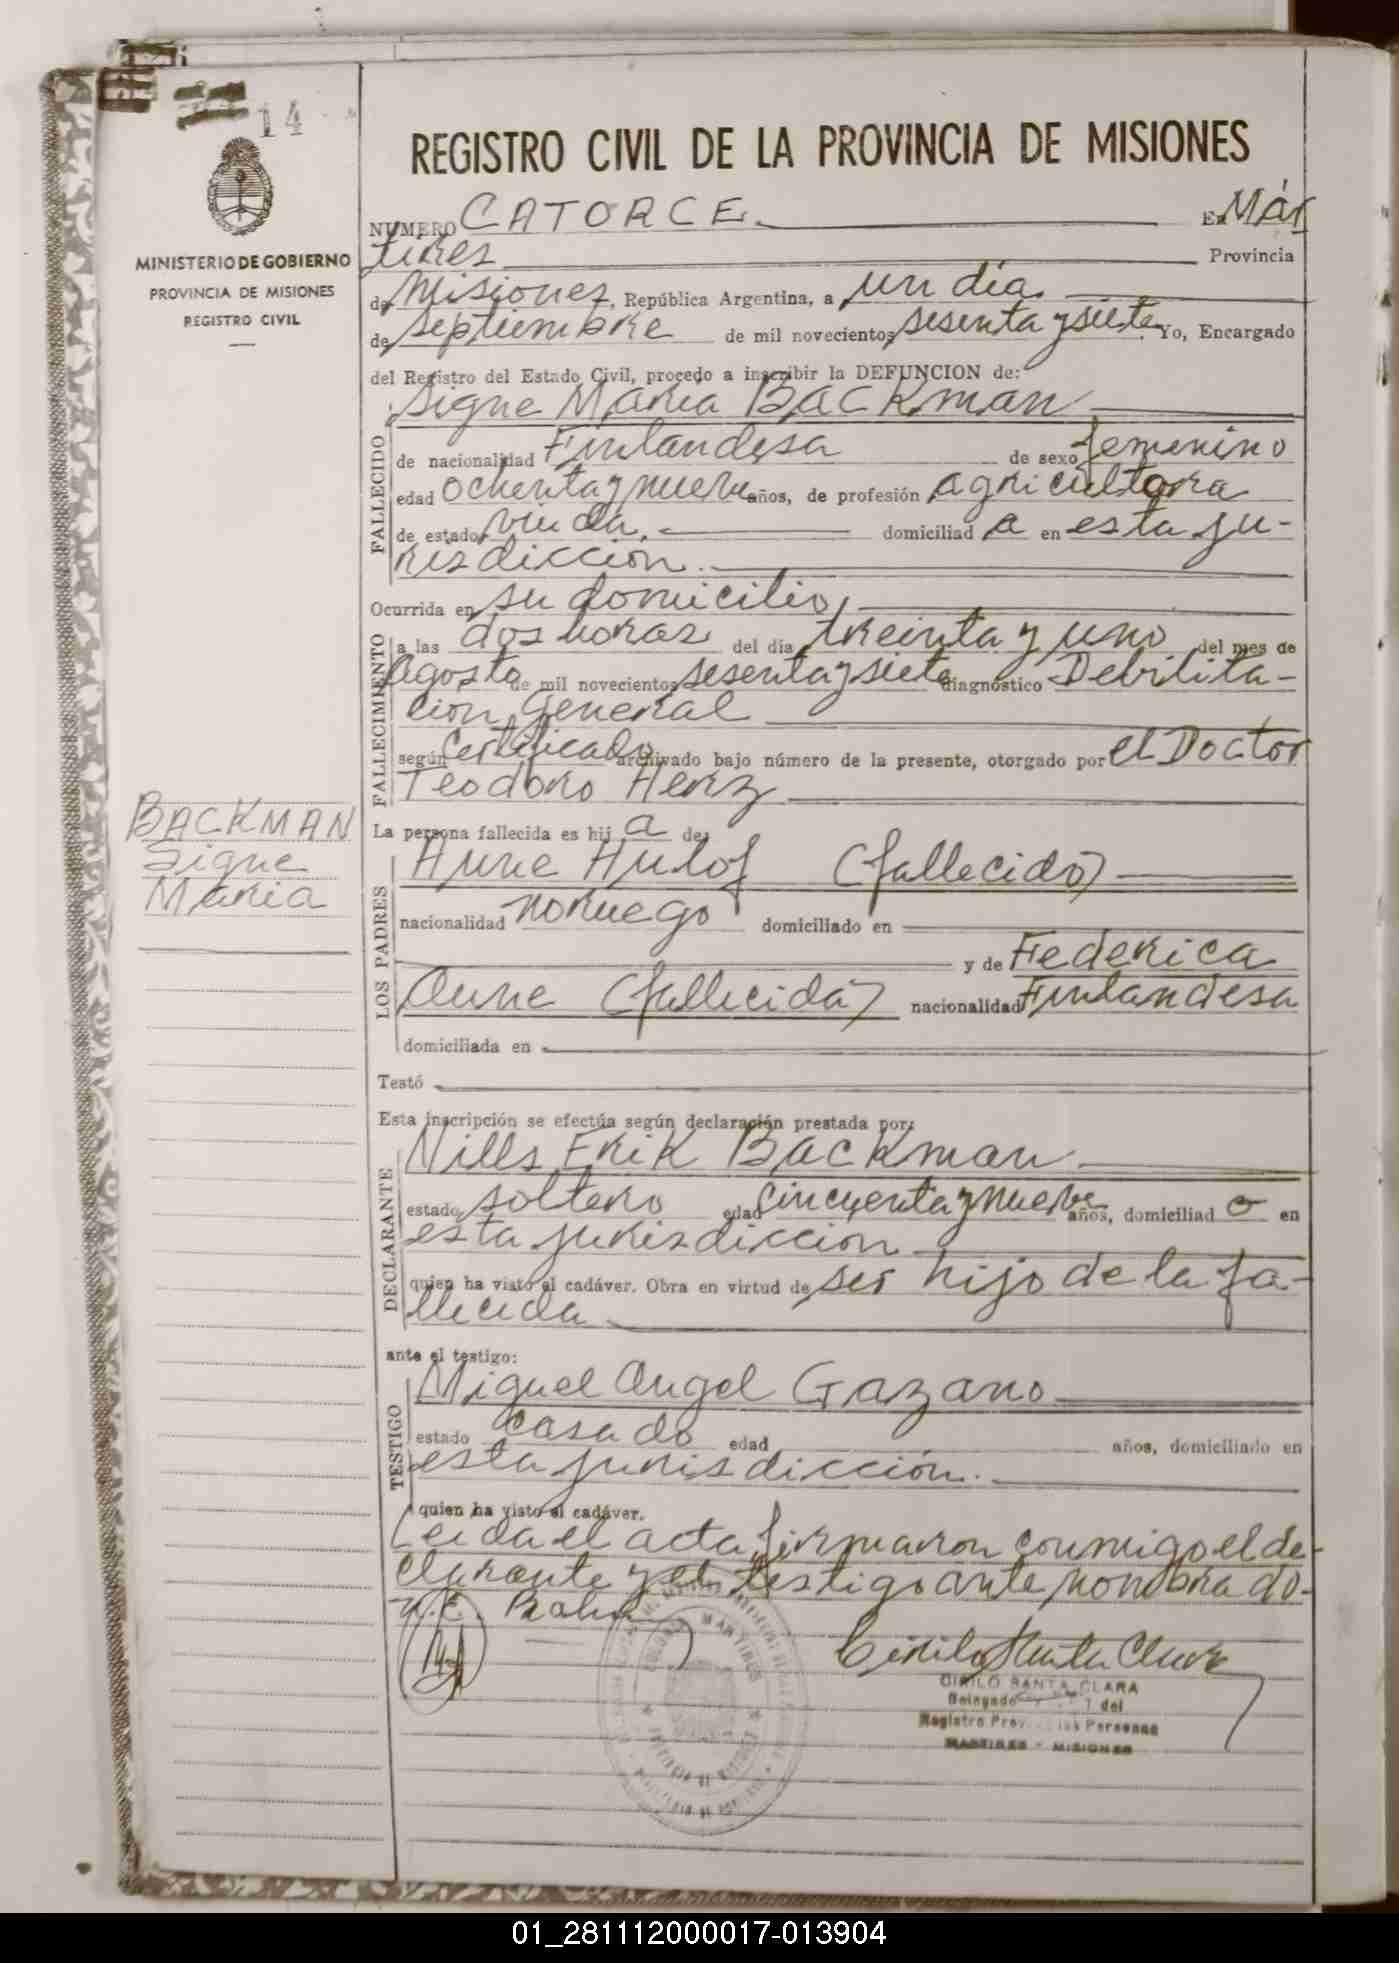 14
REGISTRO CIVIL DE LA PROVINCIA DE MISIONES
MINISTERIO DE GOBIERNO
PROVINCIA DE MISIONES
REGISTRO CIVIL
NUMERO CATORCE. En Már
tires Provincia
de Misiones, República Argentina, a un día
de septiembre de mil novecientos sesenta y siete Yo, Encargado
del Registro del Estado Civil, procedo a inscribir la DEFUNCION de:
Signe Maria BACKman
FALLECIDO
de nacionalidad Finlandesa de sexo femenino
edad ochenta y nueve años, de profesión agricultora
de estado viuda, domiciliad a en esta ju-
risdicción.
Ocurrida en su domicilio,
FALLECIMIENTO
a las dos horas del día treinta y uno del mes de
Agosto de mil novecientos sesenta y siete diagnóstico Debilita-
cion General
según Certificado archivado bajo número de la presente, otorgado por el Doctor
Teodoro Herz
BACKMAN
Signe
Maria
La persona fallecida es hij a de:
LOS PADRES
Aune Hulof (fallecido)
nacionalidad noruego domiciliado en
y de Federica
Aune (fallecida) nacionalidad Finlandesa
domiciliada en
Testó
Esta inscripción se efectúa según declaración prestada por:
DECLARANTE
Nills Erik BACKman
estado soltero edad cincuenta y nueve años, domiciliad o en
esta jurisdiccion
quien ha visto el cadáver. Obra en virtud de ser hijo de la fa-
llecida
ante el testigo:
TESTIGO
Miguel Angel Gazano
estado casado edad años, domiciliado en
esta jurisdicción.
quien ha visto el cadáver.
Leida el acta, firmaron conmigo el de-
clarante y el testigo ante nombrado.
Cirilo Santa Clara
CIRILO SANTA CLARA
Delegado del
Registro Prov. las Personas
MARTIRES - MISIONES
01_281112000017-013904